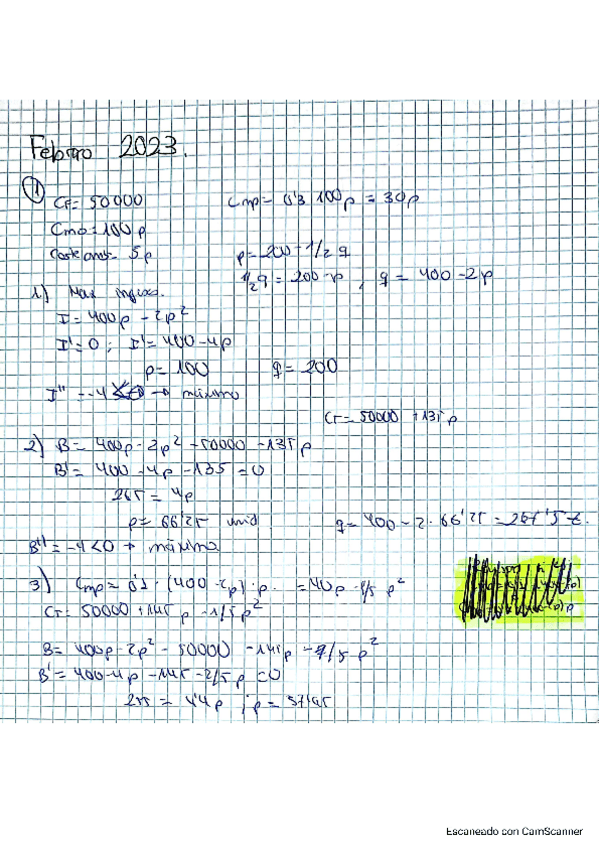 Febrero 2023.
1
CF = 50000 Cmp = 0'3 100p = 30p
Cmo = 100p
5p p = 200 - 1/2 q
1/2q = 200 - p , q = 400 - 2p
1) Max
I = 400p - 2p²
I' = 0 ; I' = 400 - 4p
p = 100 q = 200
I'' = -4 <0 → máximo
CT = 50000 + 135p
2) B = 400p - 2p² - 50000 - 135p
B' = 400 - 4p - 135 = 0
265 = 4p
p = 66'25 unid q = 400 - 2 · 66'25 = 267'5
B'' = -4 < 0 → máximo
3) Cmp = 0'1 · (400 - 2p) · p = 40p - 1/5 p²
CT = 50000 + 145p - 1/5p²
B = 400p - 2p² - 50000 - 145p - 1/5 p²
B' = 400 - 4p - 145 - 2/5p = 0
255 = 4'4p ; p = 57'95
Escaneado con CamScanner